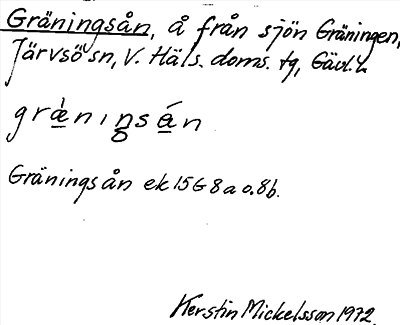 Gräningsån, å från sjön Gräningen,
Järvsö sn, V. Häls. doms. tg, Gävl. L.
græ̀ningsán
Gräningsån ek 15G 8a o. 8b.
Kerstin Mickelsson 1972.